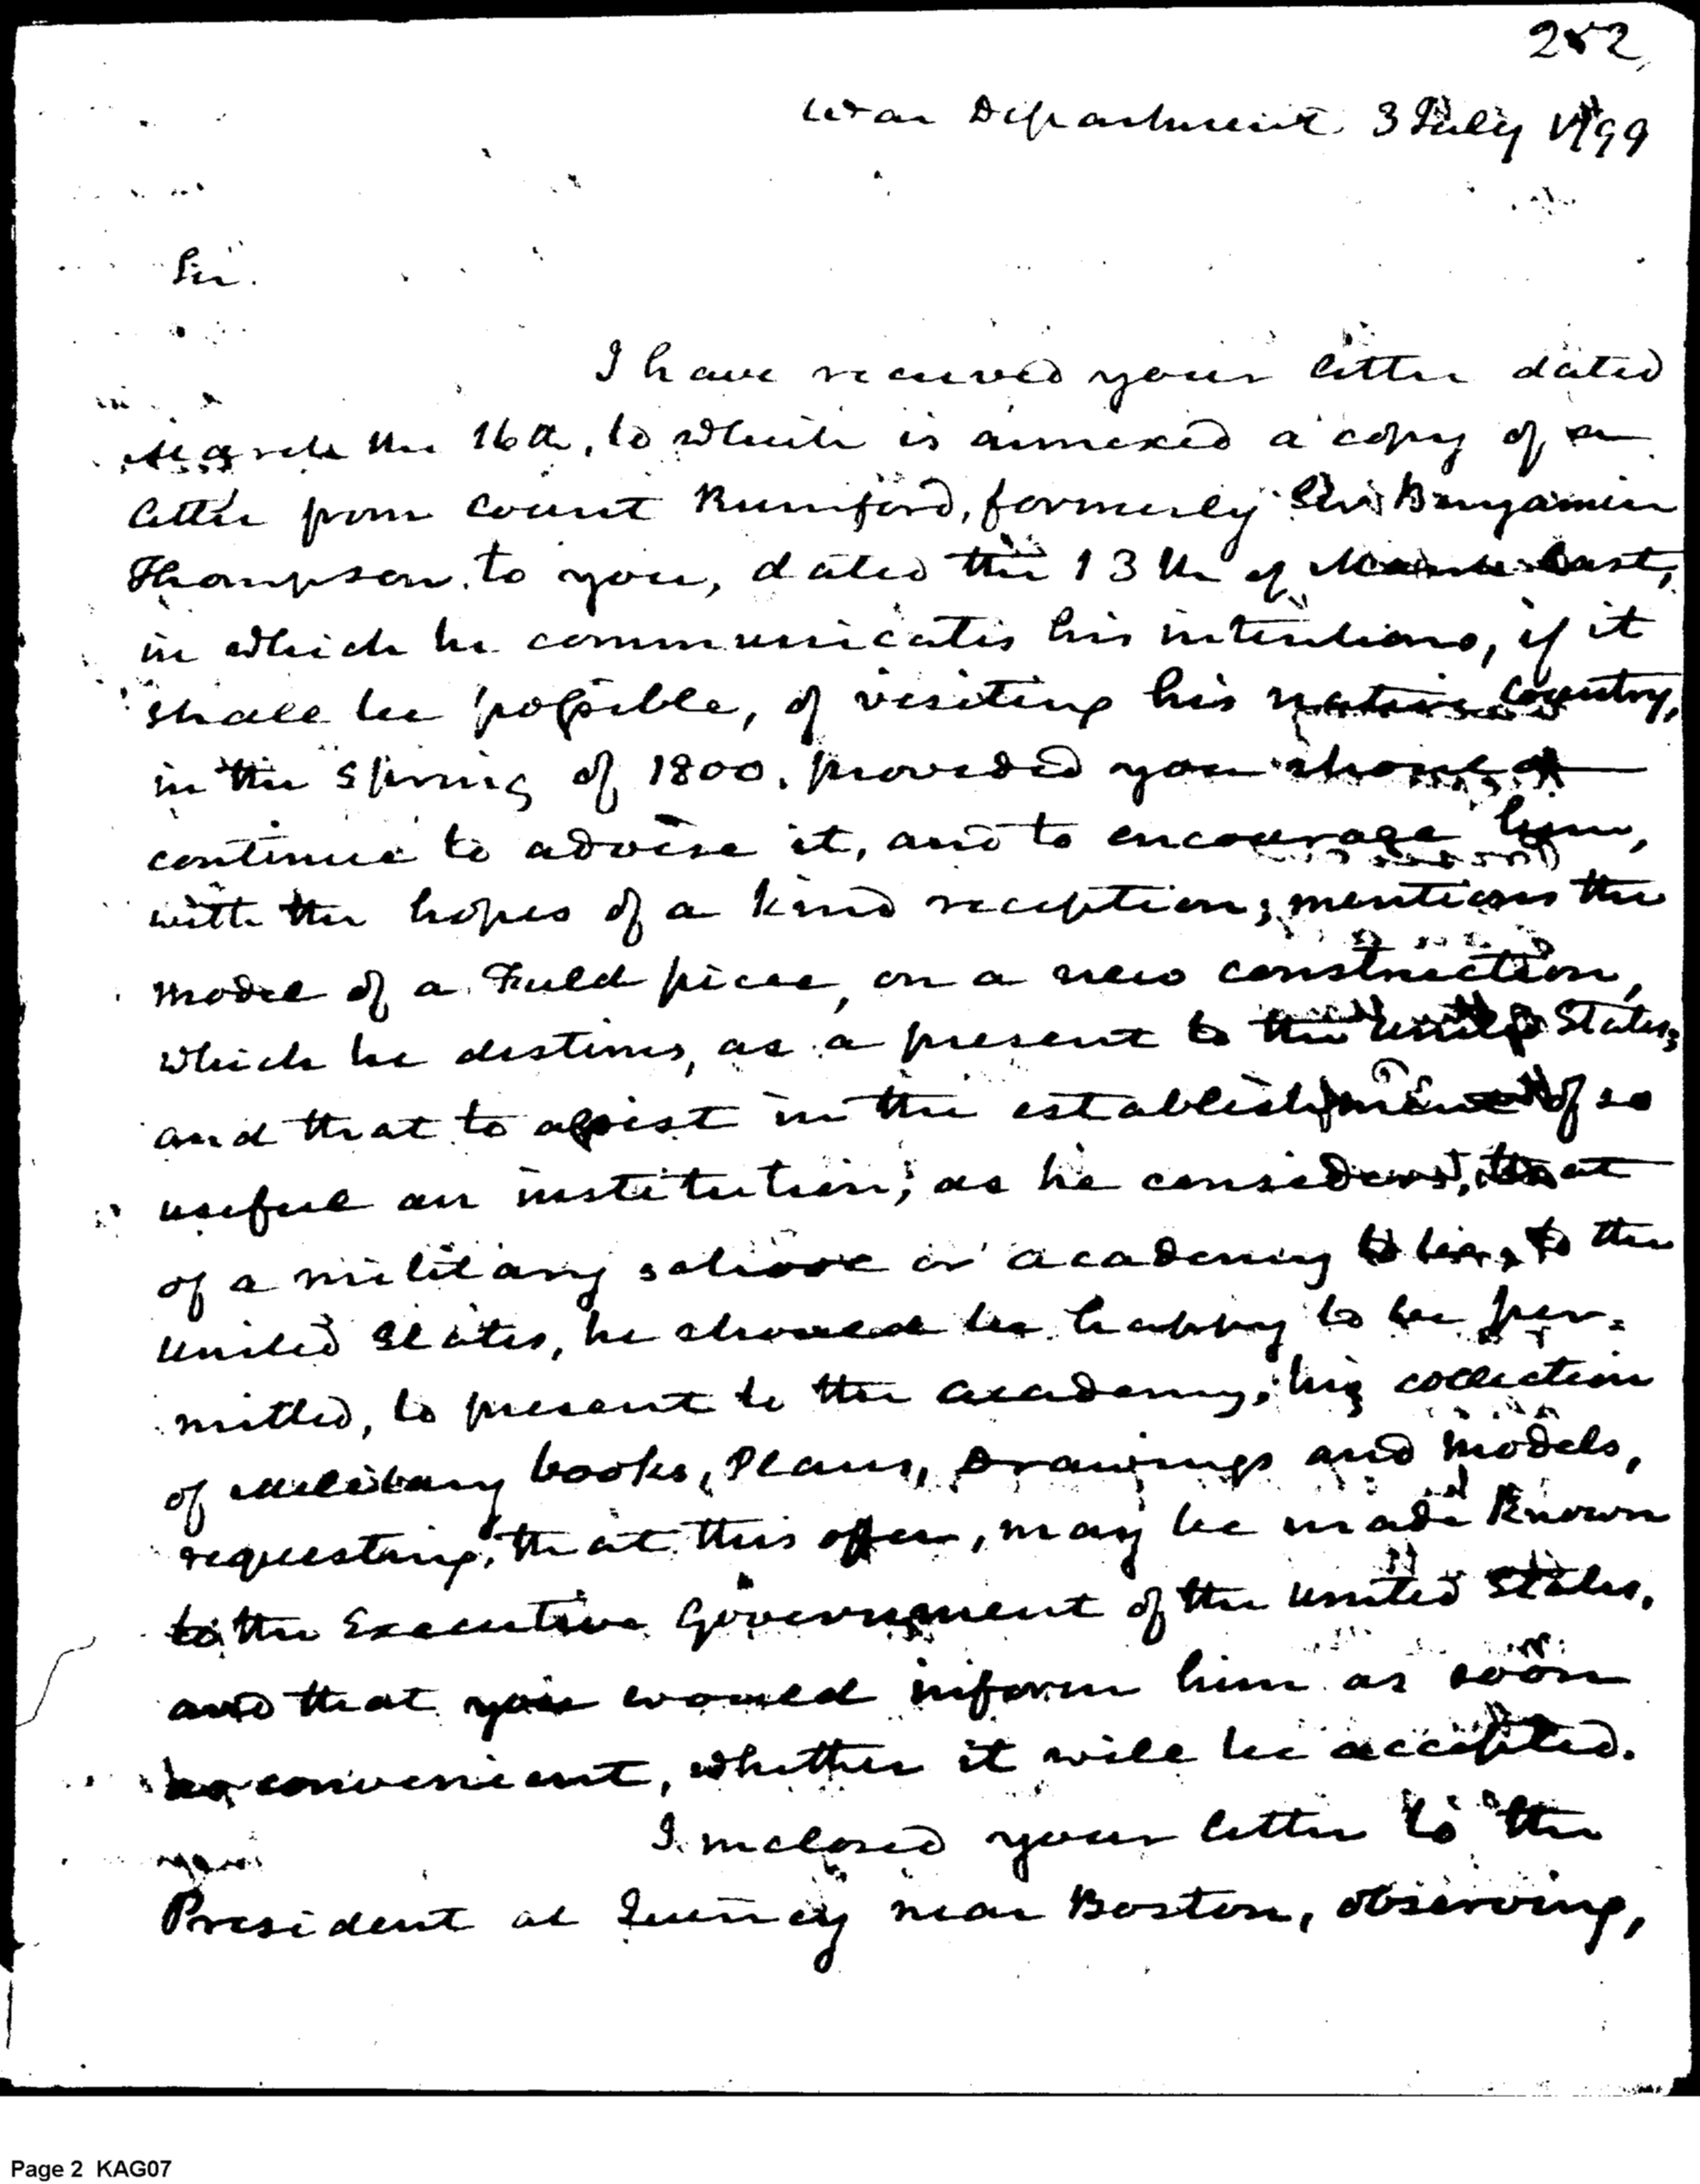 252
War Department 3 July 1799
Sir.
I have received your letter dated
March the 16th, to which is annexed a copy of a
letter from Count Rumford, formerly Sir Benjamin
Thompson, to you, dated the 13th of March last,
in which he communicates his intentions, if it
shall be possible, of visiting his native Country,
in the Spring of 1800, provided you should
continue to advise it, and to encourage him,
with the hopes of a kind reception; mentions the
model of a Field piece, on a new construction,
which he destines, as a present to the United States;
and that to assist in the establishment of so
useful an institution; as he considers, that
of a military school or academy to be, to the
United States, he should be happy to be per=
mitted, to present to the academy, his collection
of military books, Plans, Drawings and Models,
requesting, that this offer, may be made Known
to the Executive Government of the United States,
and that you would inform him as soon
as convenient, whether it will be accepted.
I inclosed your letter to the
President at Quincy near Boston, observing,
Page 2 KAG07